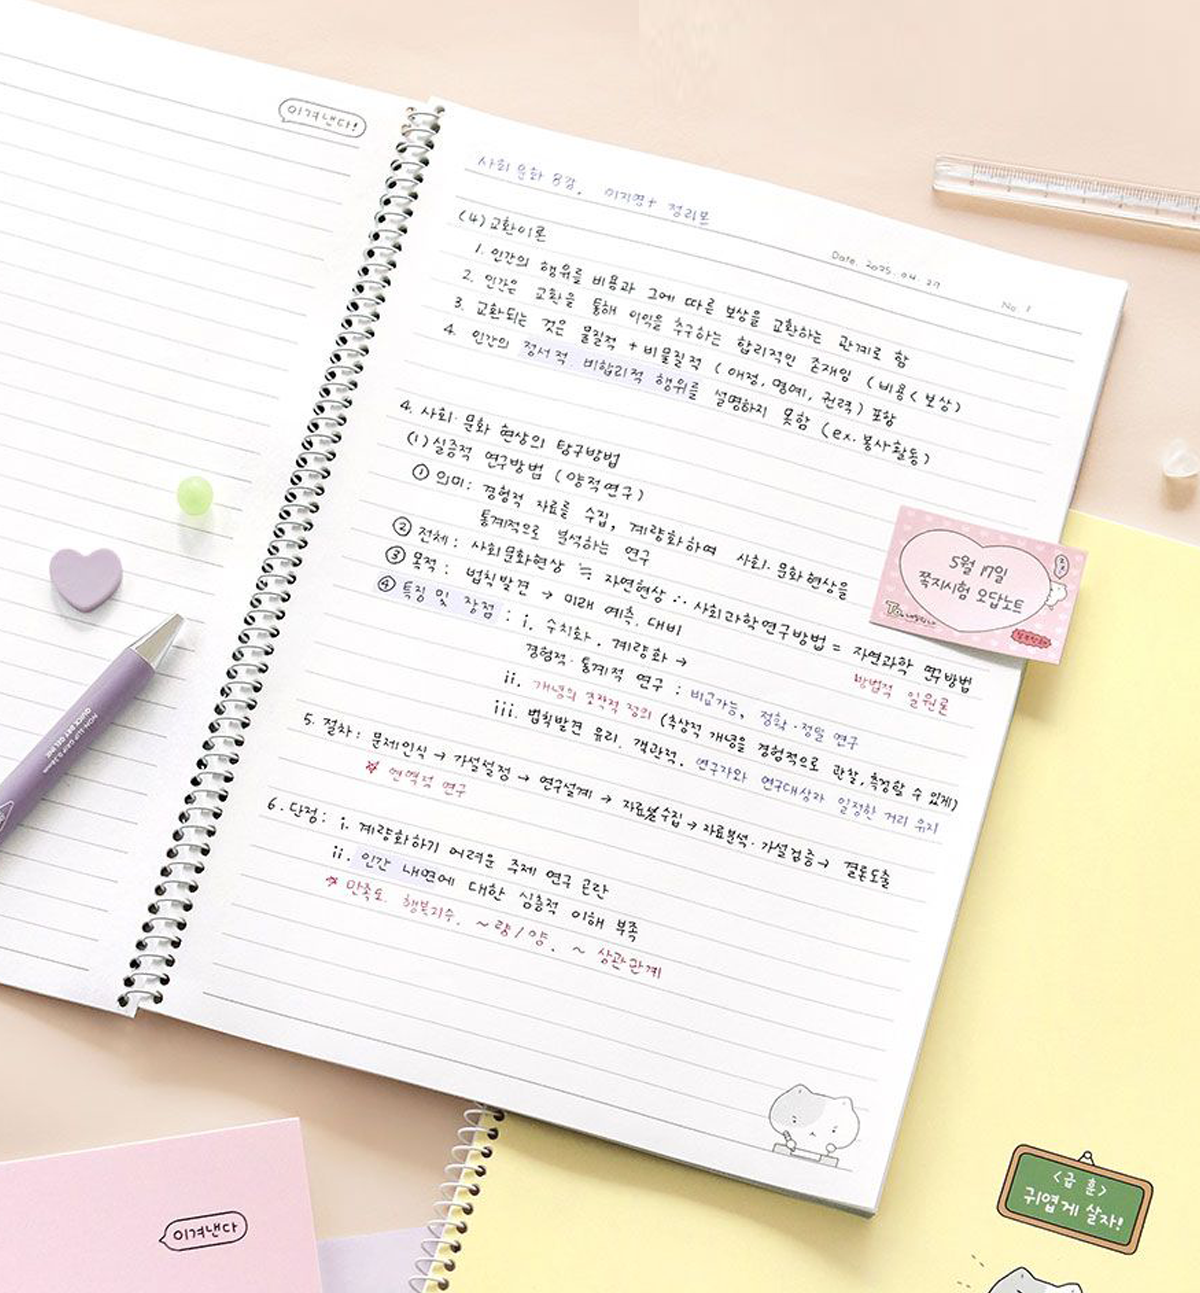 이겨낸다!
사회 문화 8강. 이지영+ 정리본
Date. 2025. 04. 27
No. 1
(4) 교환이론
1. 인간의 행위를 비용과 그에 따른 보상을 교환하는 관계로 함
2. 인간은 교환을 통해 이익을 추구하는 합리적인 존재임 (비용 < 보상)
3. 교환되는 것은 물질적 + 비물질적 (애정, 명예, 권력) 포함
4. 인간의 정서적·비합리적 행위를 설명하지 못함 (ex. 봉사활동)
4. 사회·문화 현상의 탐구방법
(1) 실증적 연구방법 (양적연구)
① 의미: 경험적 자료를 수집, 계량화하여 사회·문화현상을
통계적으로 분석하는 연구
② 전체: 사회문화현상 ≒ 자연현상 ∴ 사회과학연구방법 = 자연과학 연구방법
방법적 일원론
③ 목적: 법칙발견 → 미래 예측, 대비
④ 특징 및 장점: i. 수치화, 계량화 →
경험적·통계적 연구: 비교가능, 정확·정밀 연구
ii. 개념의 조작적 정의 (추상적 개념을 경험적으로 관찰, 측정할 수 있게)
iii. 법칙발견 유리, 객관적, 연구자와 연구대상자 일정한 거리 유지
5. 절차: 문제인식 → 가설설정 → 연구설계 → 자료수집 → 자료분석·가설검증 → 결론도출
☆ 연역적 연구
6. 단점: i. 계량화하기 어려운 주제 연구 곤란
ii. 인간 내면에 대한 심층적 이해 부족
☆ 만족도, 행복지수, ~량/양, ~ 상관관계
5월 17일
쪽지시험 오답노트
To.
NON-SLIP GRIP 0.38mm
QUICK DRY GEL INK
이겨낸다
<급훈>
귀엽게 살자!